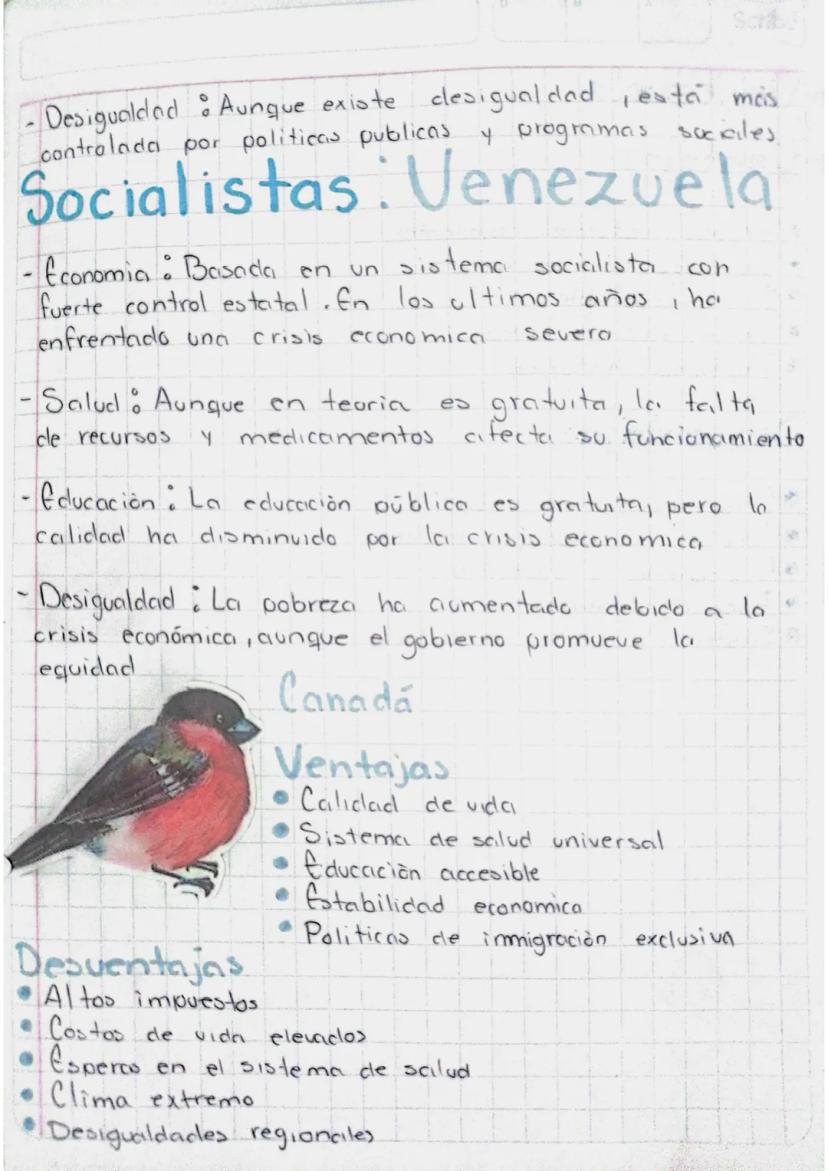 Scribe
- Desigualdad : Aunque existe desigualdad , está más
controlada por politicas publicas y programas sociales
Socialistas : Venezuela
- Economia : Basada en un sistema socialista con
fuerte control estatal . En los ultimos años , ha
enfrentado una crisis economica severa
- Salud : Aunque en teoria es gratuita, la falta
de recursos y medicamentos afecta su funcionamiento
- Educación : La educación pública es gratuita, pero la
calidad ha disminuido por la crisis economica
- Desigualdad : La pobreza ha aumentado debido a la
crisis económica , aunque el gobierno promueve la
equidad
Canadá
Ventajas
• Calidad de vida
• Sistema de salud universal
• Educación accesible
• Estabilidad economica
• Politicas de inmigración exclusiva
Desventajas
• Altos impuestos
• Costos de vida elevados
• Esperas en el sistema de salud
• Clima extremo
• Desigualdades regionales